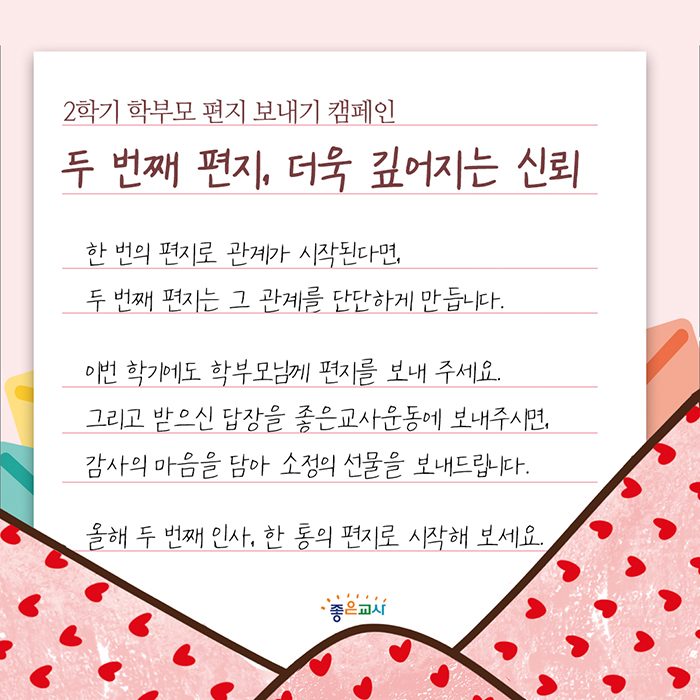 2학기 학부모 편지 보내기 캠페인
두 번째 편지, 더욱 깊어지는 신뢰
한 번의 편지로 관계가 시작된다면,
두 번째 편지는 그 관계를 단단하게 만듭니다.
이번 학기에도 학부모님께 편지를 보내 주세요.
그리고 받으신 답장을 좋은교사운동에 보내주시면,
감사의 마음을 담아 소정의 선물을 보내드립니다.
올해 두 번째 인사, 한 통의 편지로 시작해 보세요.
좋은교사